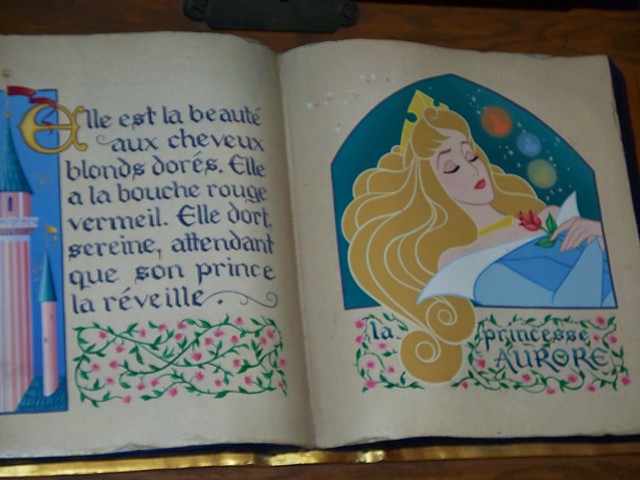 Elle est la beauté
aux cheveux
blonds dorés. Elle
a la bouche rouge
vermeil. Elle dort,
sereine, attendant
que son prince
la réveille.
la princesse
AURORE